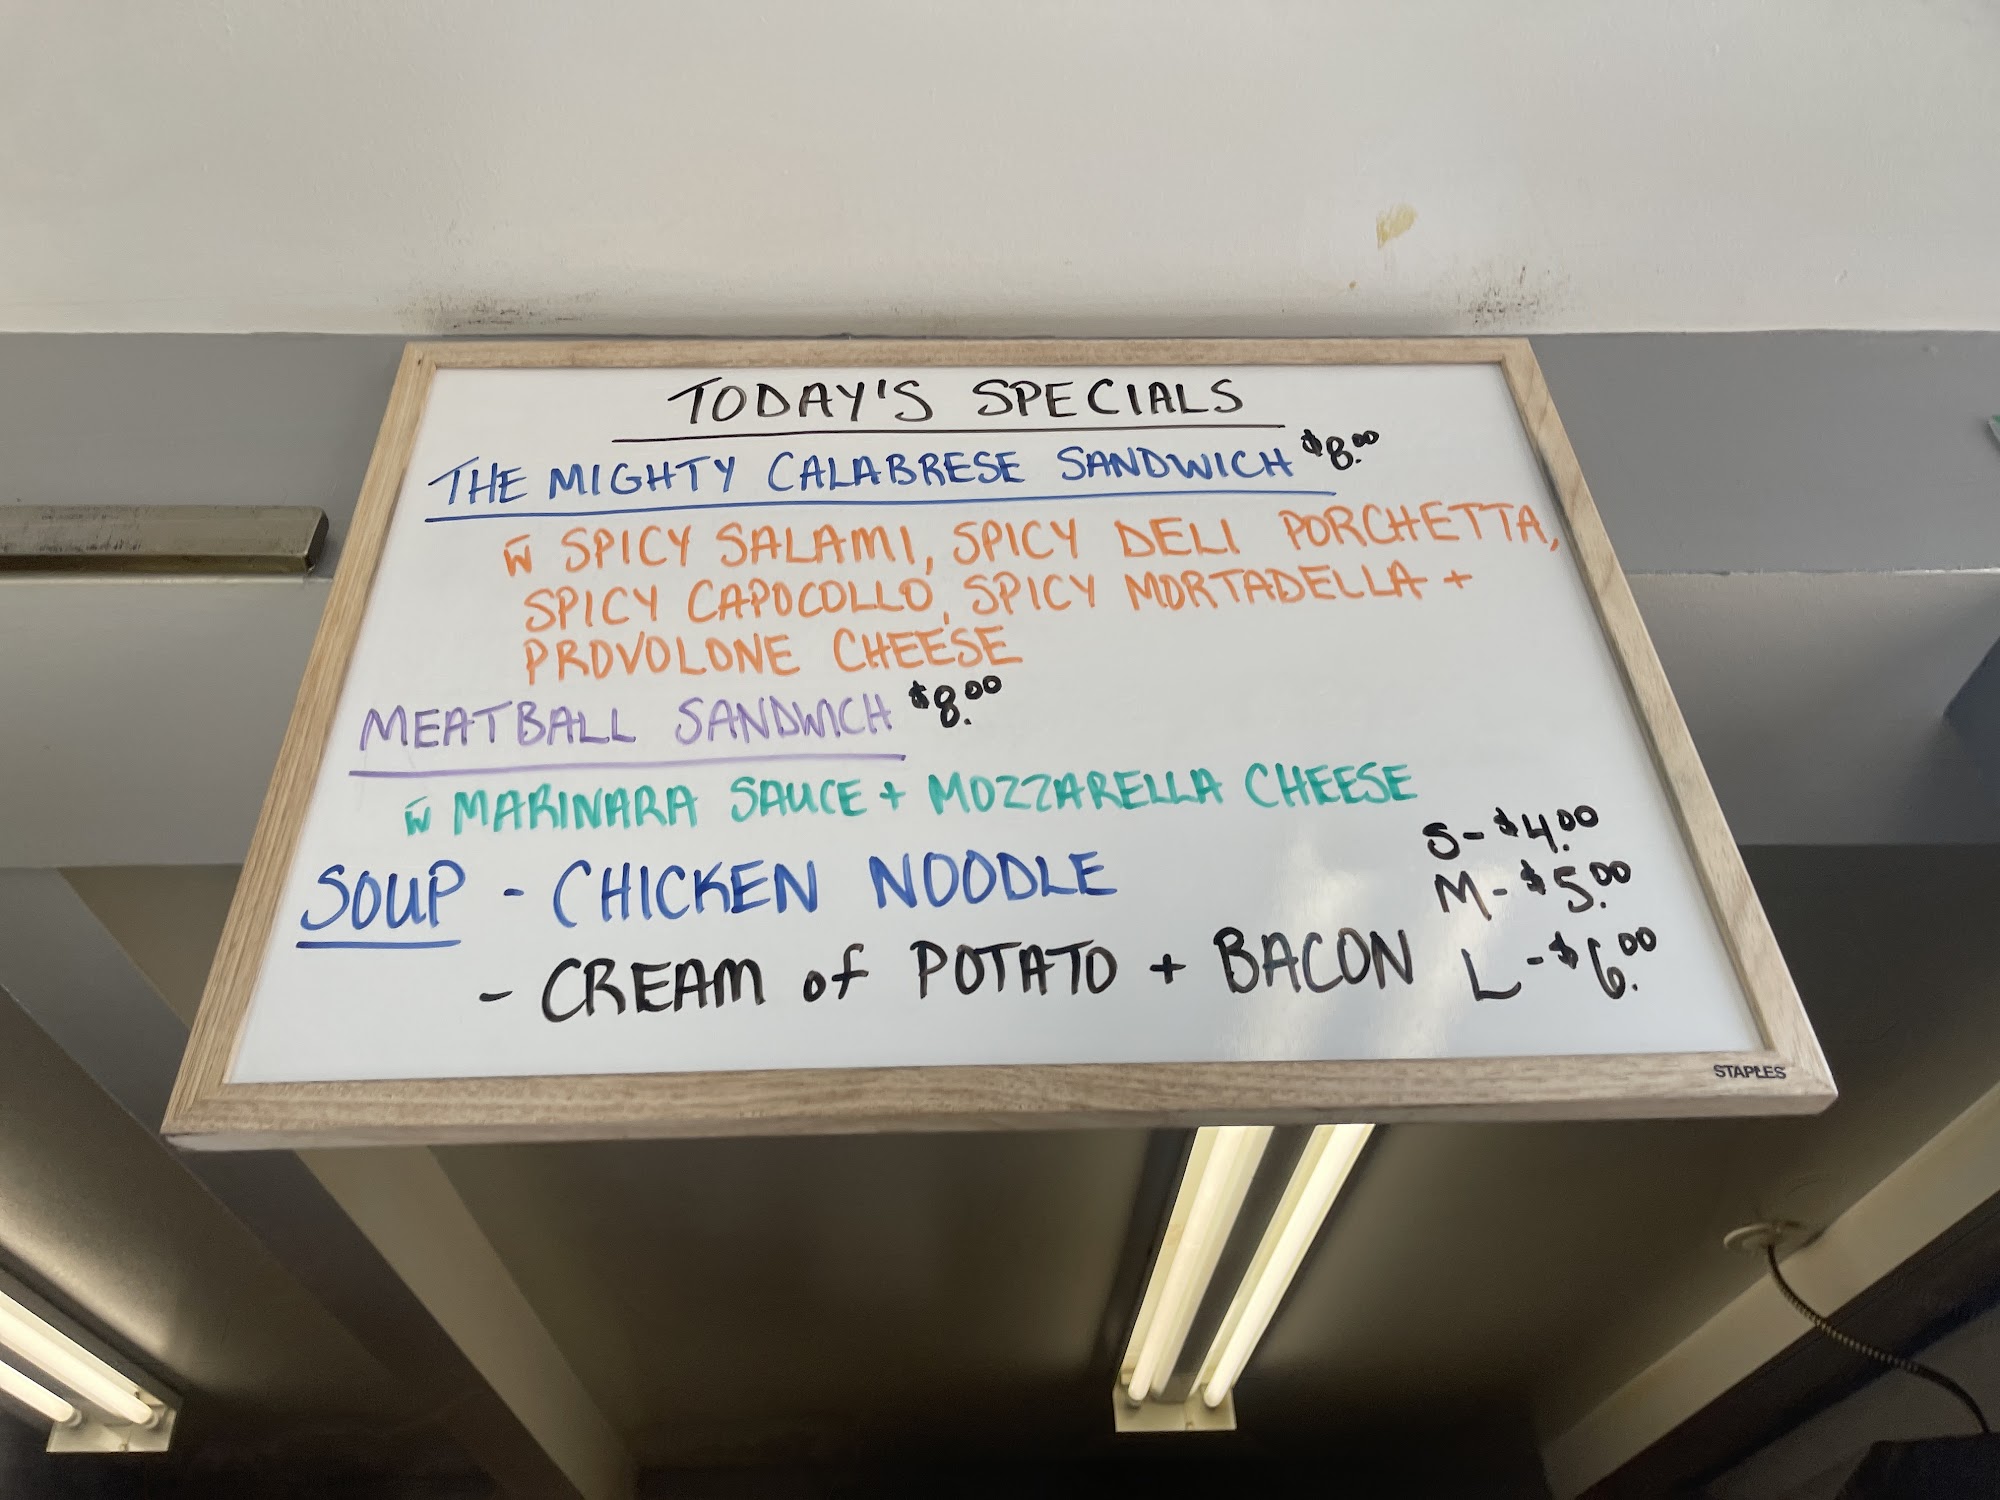 TODAY'S SPECIALS
THE MIGHTY CALABRESE SANDWICH $8.00
W SPICY SALAMI, SPICY DELI PORCHETTA,
SPICY CAPOCOLLO, SPICY MORTADELLA +
PROVOLONE CHEESE
MEATBALL SANDWICH $8.00
W MARINARA SAUCE + MOZZARELLA CHEESE
SOUP - CHICKEN NOODLE
- CREAM of POTATO + BACON
S - $4.00
M - $5.00
L - $6.00
STAPLES